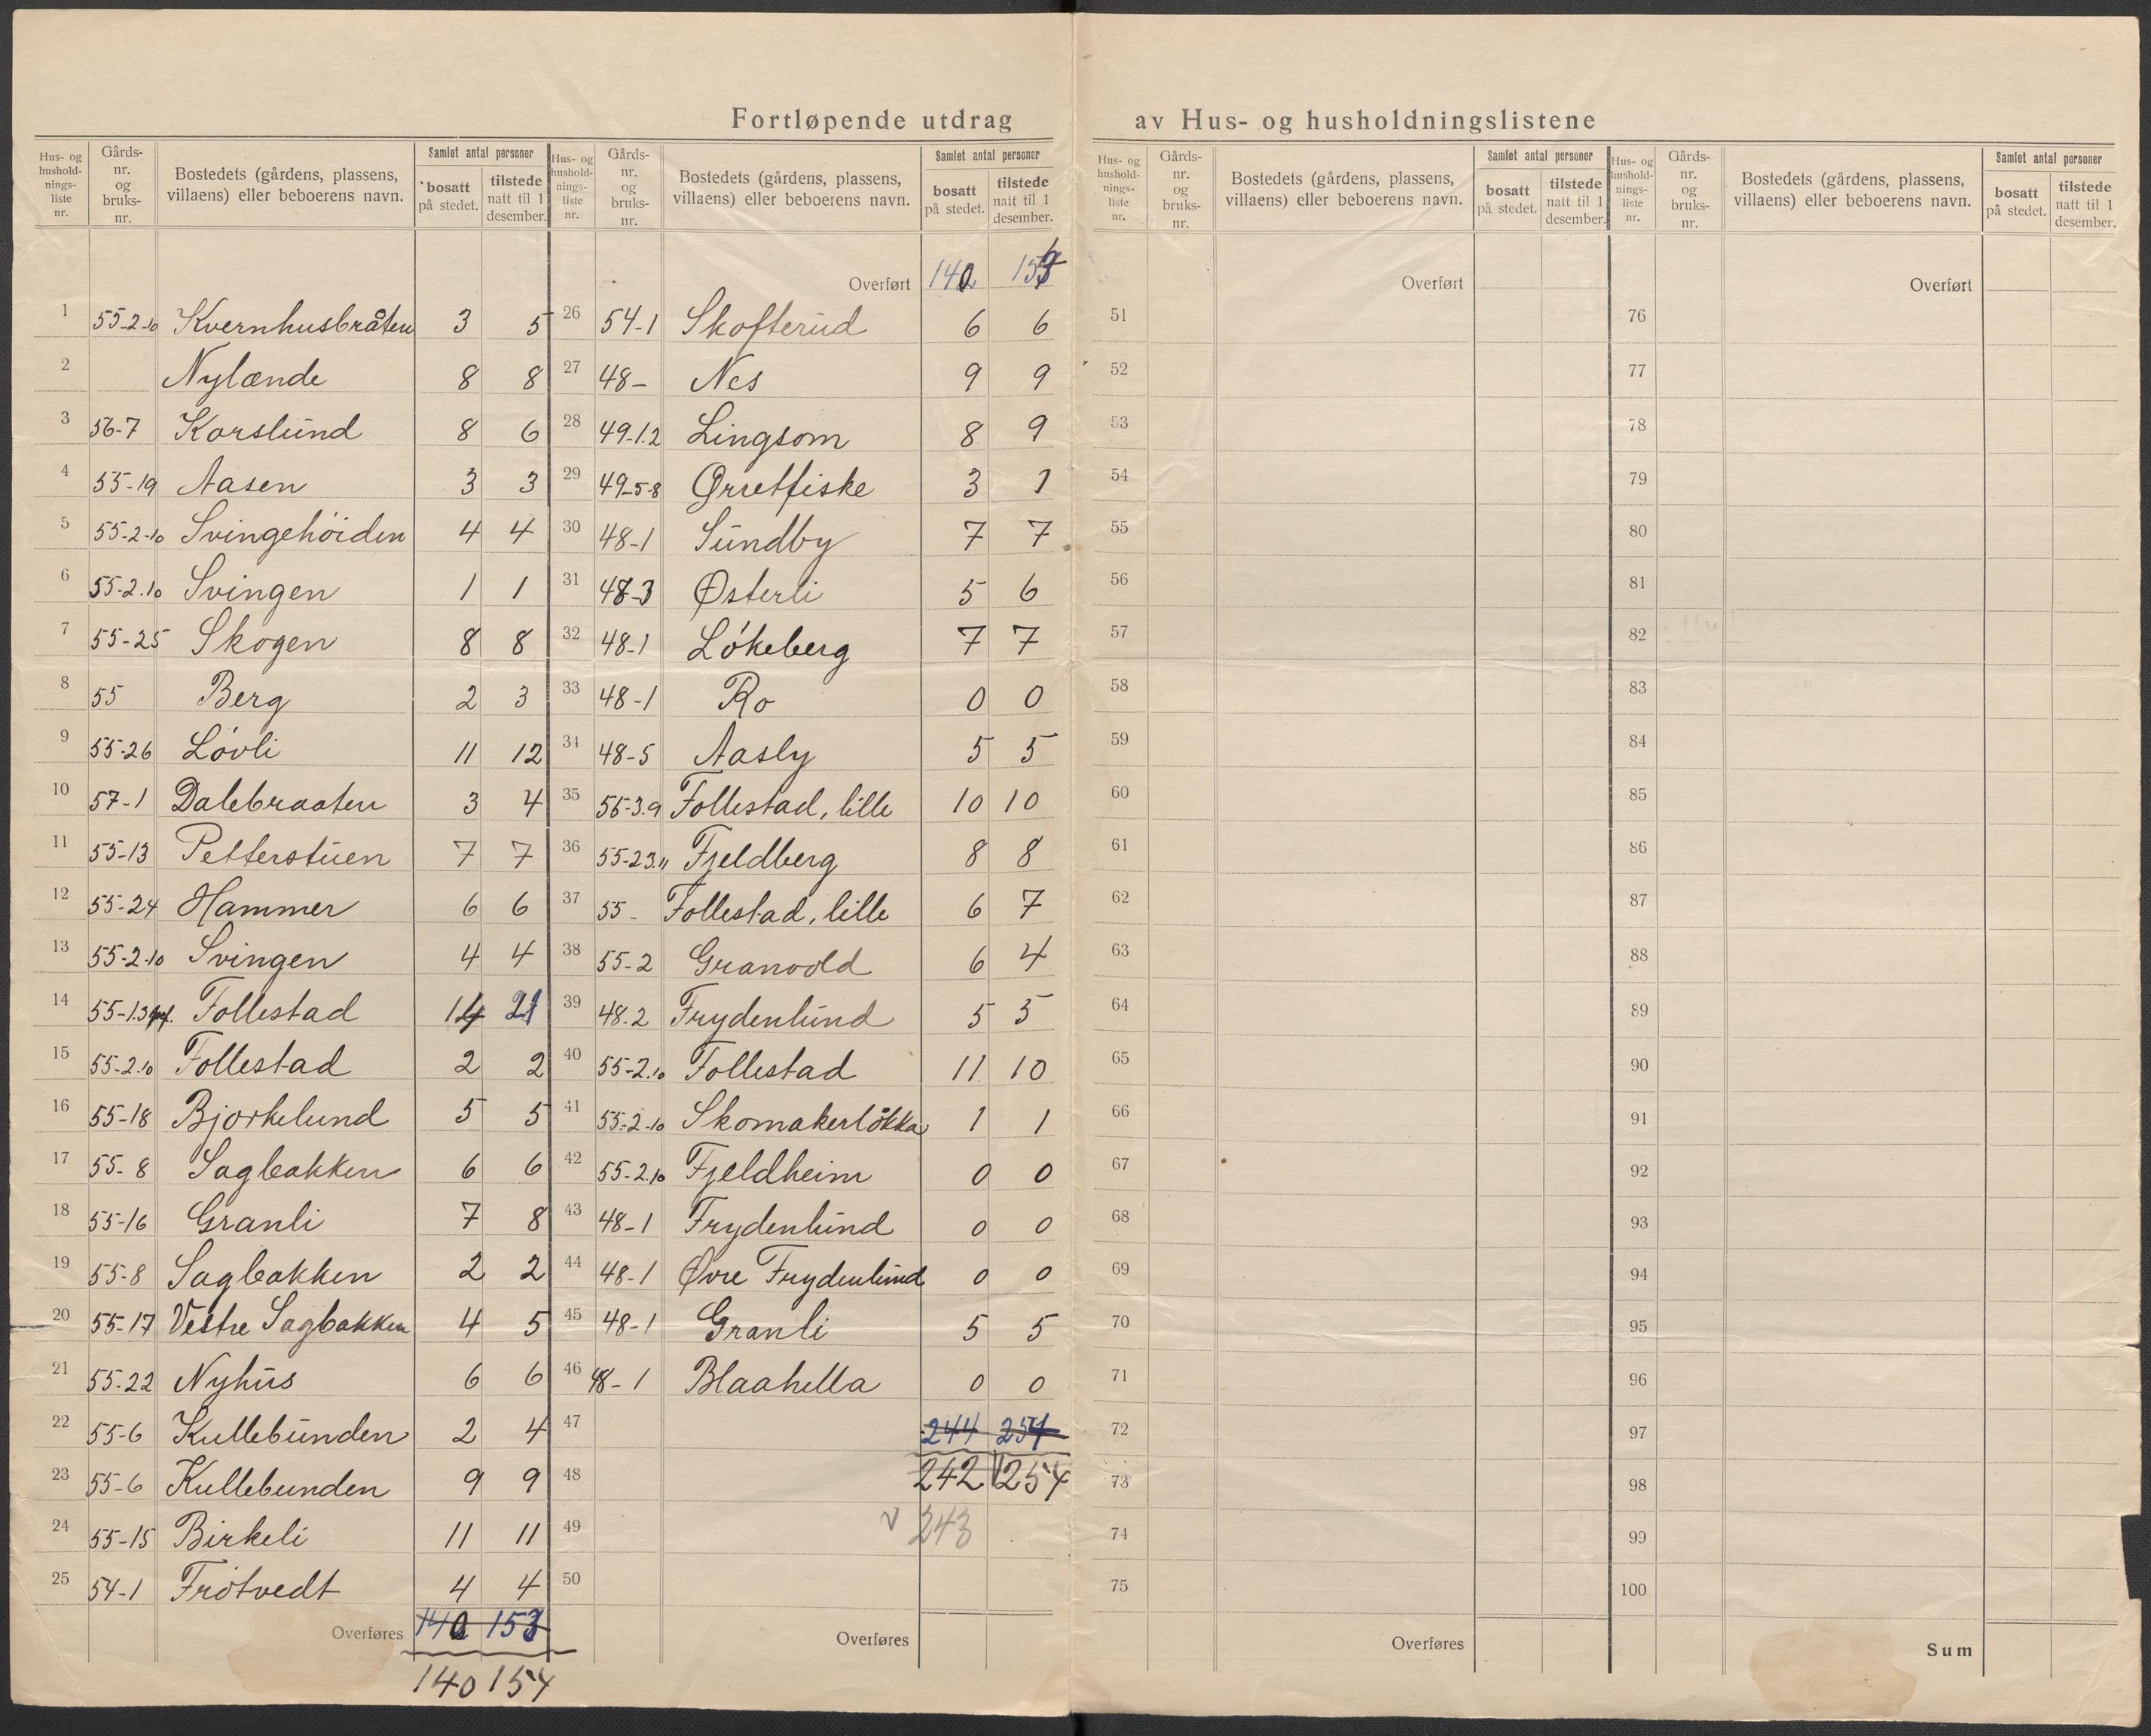 Fortløpende utdrag av Hus- og husholdningslistene
Hus- og husholdnings-liste nr. Gårds-nr. og bruks-nr. Bostedets (gårdens, plassens, villaens) eller beboerens navn. Samlet antal personer bosatt på stedet. tilstede natt til 1 desember.
1 55-2-10 Kvernhusbråten 3 5
2 Nylænde 8 8
3 56-7 Korslund 8 6
4 55-19 Aasen 3 3
5 55-2-10 Svingehöiden 4 4
6 55-2.10 Svingen 1 1
7 55-25 Skogen 8 8
8 55 Berg 2 3
9 55-26 Lövli 11 12
10 57-1 Dalebraaten 3 4
11 55-13 Petterstuen 7 7
12 55-24 Hammer 6 6
13 55-2-10 Svingen 4 4
14 55-1.3 Follestad 14 21
15 55-2.10 Follestad 2 2
16 55-18 Bjorkelund 5 5
17 55-8 Sagbakken 6 6
18 55-16 Granli 7 8
19 55-8 Sagbakken 2 2
20 55-17 Vestre Sagbakken 4 5
21 55-22 Nyhus 6 6
22 55-6 Kullebunden 2 4
23 55-6 Kullebunden 9 9
24 55-15 Birkeli 11 11
25 54-1 Frötvedt 4 4
Overføres 140 153
140 154
Hus- og husholdnings-liste nr. Gårds-nr. og bruks-nr. Bostedets (gårdens, plassens, villaens) eller beboerens navn. Samlet antal personer bosatt på stedet. tilstede natt til 1 desember.
Overført 140
26 54-1 Skofterud 6 6
27 48- Nes 9 9
28 49-1.2 Lingsom 8 9
29 49-5-8 Ørretfiske 3 1
30 48-1 Sundby 7 7
31 48-3 Østerli 5 6
32 48-1 Lökeberg 7 7
33 48-1 Ro 0 0
34 48-5 Aasly 5 5
35 55-3.9 Follestad, lille 10 10
36 55-23.11 Fjeldberg 8 8
37 55- Follestad, lille 6 7
38 55-2 Granvold 6 4
39 48.2 Frydenlund 5 5
40 55-2.10 Follestad 11 10
41 55-2-10 Skomakerløkka 1 1
42 55-2.10 Fjeldheim 0 0
43 48-1 Frydenlund 0 0
44 48-1 Øvre Frydenlund 0 0
45 48-1 Granli 5 5
46 48-1 Blaahella 0 0
47 244 254
48 242 254
49 v 243
50
Overføres
Hus- og husholdnings-liste nr. Gårds-nr. og bruks-nr. Bostedets (gårdens, plassens, villaens) eller beboerens navn. Samlet antal personer bosatt på stedet. tilstede natt til 1 desember.
Overført
51
52
53
54
55
56
57
58
59
60
61
62
63
64
65
66
67
68
69
70
71
72
73
74
75
Overføres
Hus- og husholdnings-liste nr. Gårds-nr. og bruks-nr. Bostedets (gårdens, plassens, villaens) eller beboerens navn. Samlet antal personer bosatt på stedet. tilstede natt til 1 desember.
Overført
76
77
78
79
80
81
82
83
84
85
86
87
88
89
90
91
92
93
94
95
96
97
98
99
100
Sum